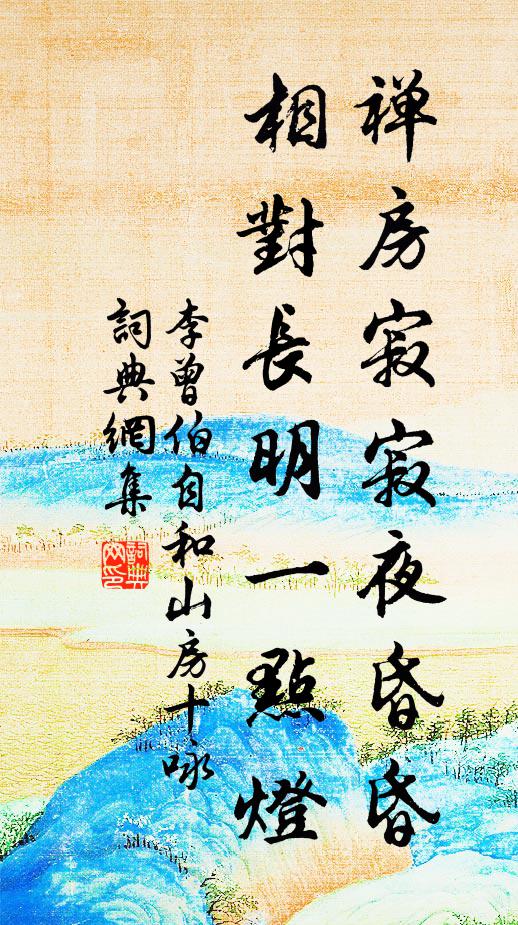 禅房寂寂夜昏昏
相對長明一點燈
李曾伯自和山房十咏
詞典網集
詞典
网印